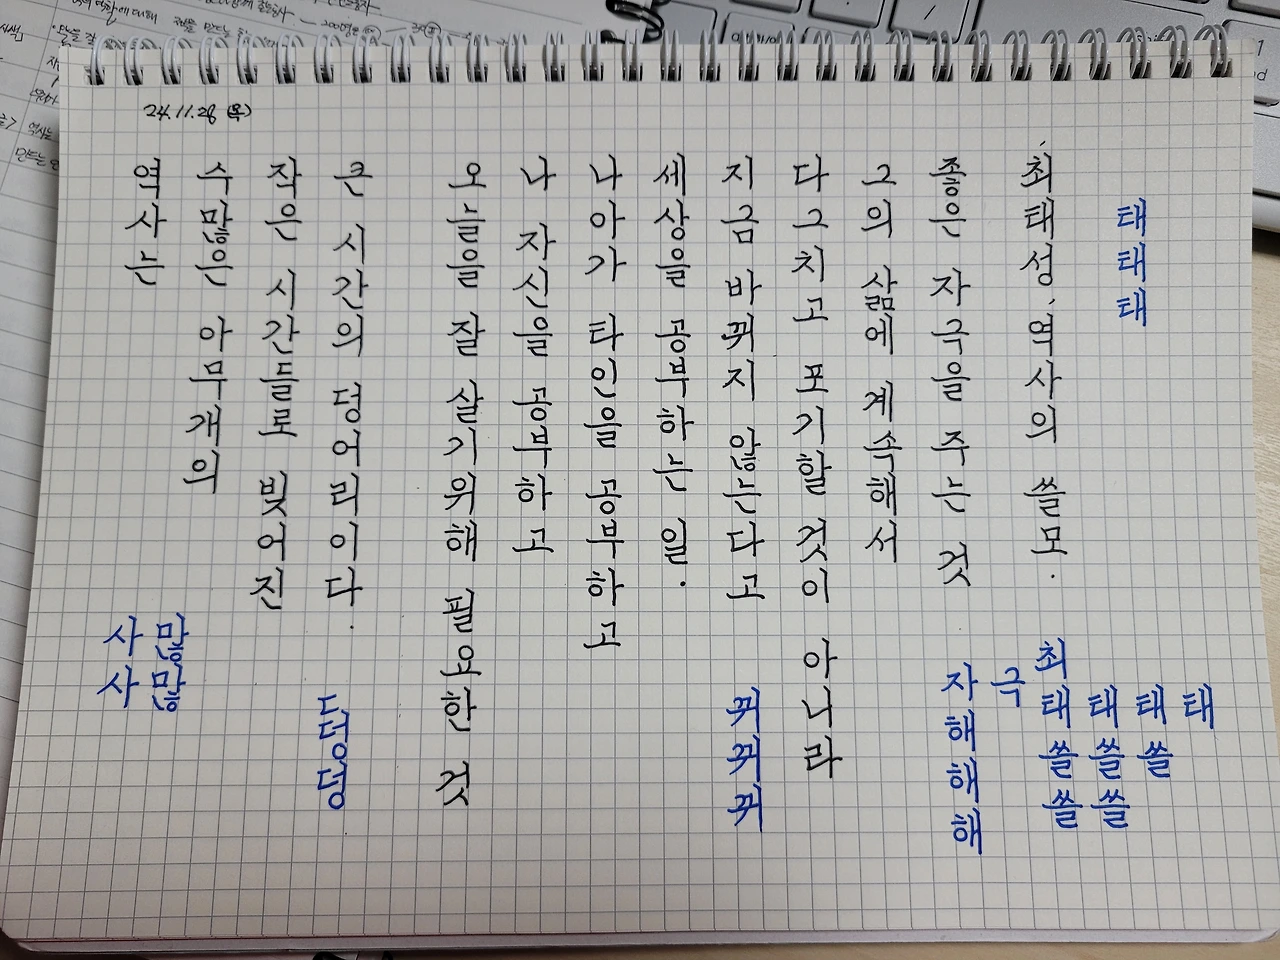 24.11.28 (목)
역사는
수많은 아무개의
작은 시간들로 빚어진
큰 시간의 덩어리이다.
오늘을 잘 살기위해 필요한 것
나 자신을 공부하고
나아가 타인을 공부하고
세상을 공부하는 일.
지금 바뀌지 않는다고
다그치고 포기할 것이 아니라
그의 삶에 계속해서
좋은 자극을 주는 것
최태성, 역사의 쓸모.
태태태
사사
많많
덩덩
뀌뀌뀌
자해해해
극
최태쓸쓸
태쓸쓸
태쓸
태